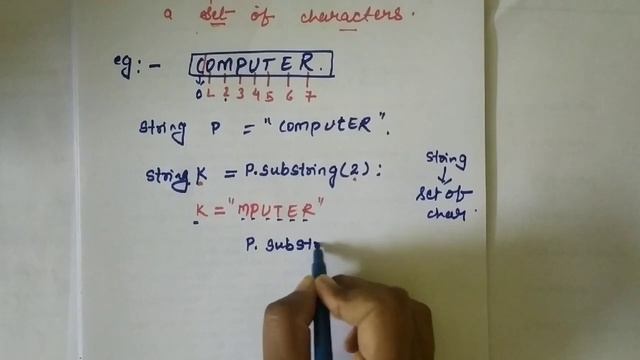 a set of characters.
eg:- COMPUTER.
0 1 2 3 4 5 6 7
String P = "COMPUTER".
String K = P.substring(2):
K = "MPUTER"
P. subst
string
set of
char.